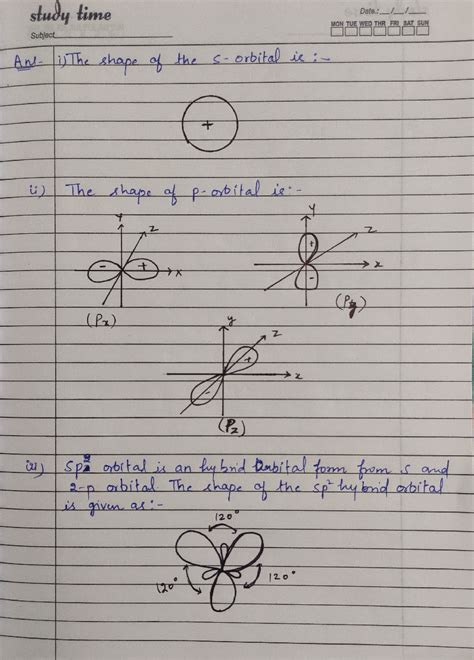 study time
Date.: / /
MON TUE WED THR FRI SAT SUN
Subject
Ans- i) The shape of the s-orbital is :-
+
ii) The shape of p-orbital is :-
y z
- + x
(Px)
y z
+
x
-
(Py)
y z
+
x
-
(Pz)
iii) Sp2 orbital is an hybrid orbital form from s and
2-p orbital The shape of the sp² hybrid orbital
is given as:-
120°
120° 120°